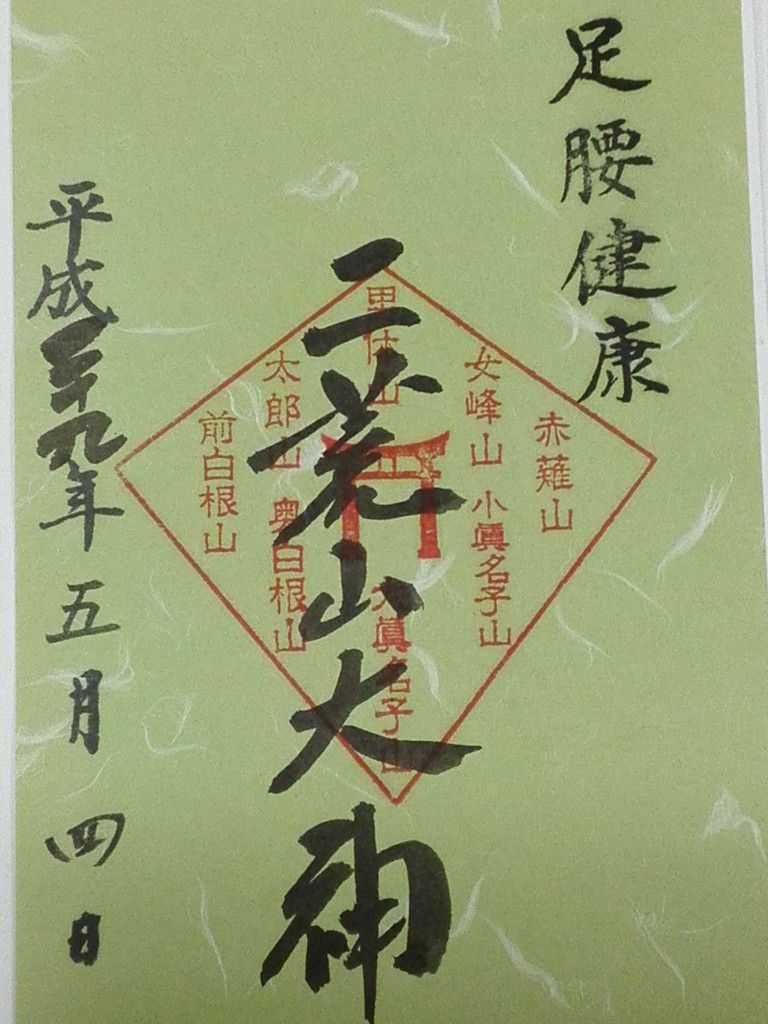 足腰健康
赤薙山
女峰山
小眞名子山
男体山
大眞名子山
太郎山
奥白根山
前白根山
二荒山大神
平成二十九年五月四日